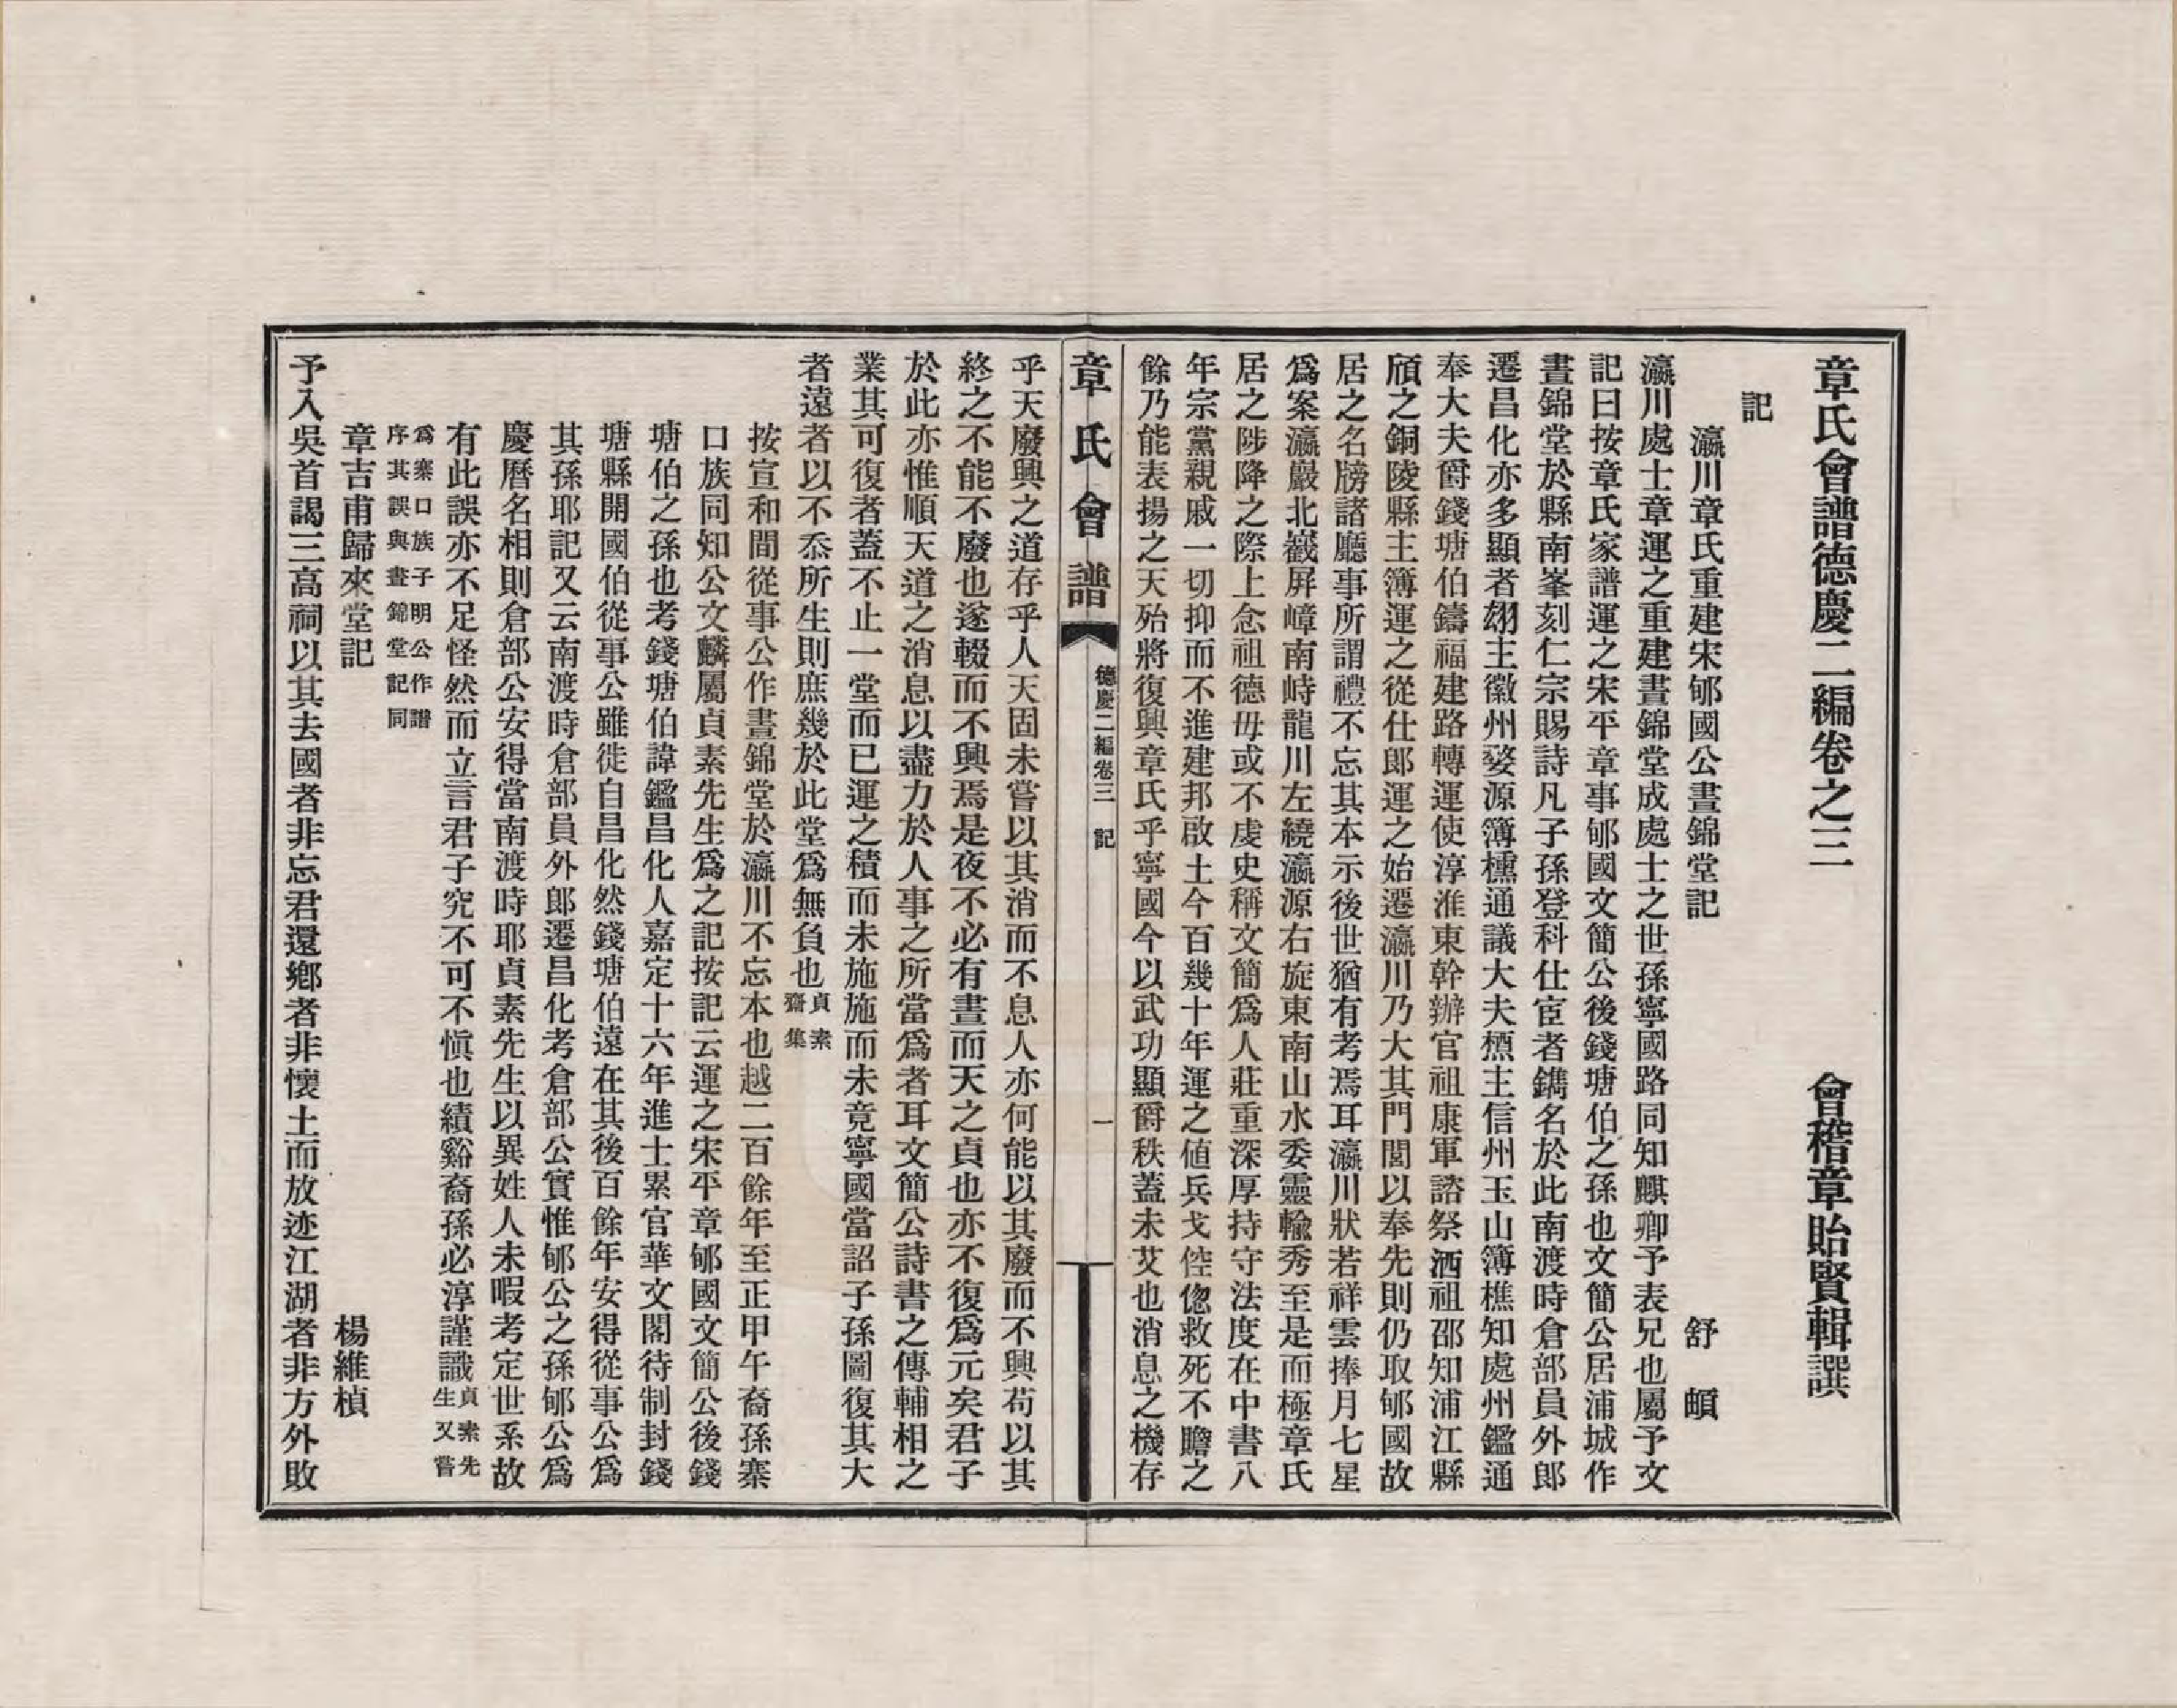 章氏會譜德慶二編卷之三　會稽章貽賢輯譔
記
瀛川章氏重建宋郇國公晝錦堂記　舒頔
瀛川處士章運之重建晝錦堂成處士之世孫寧國路同知麒卿予表兄也屬予文
記曰按章氏家譜運之宋平章事郇國文簡公後錢塘伯之孫也文簡公居浦城作
晝錦堂於縣南峯刻仁宗賜詩凡子孫登科仕宦者鐫名於此南渡時倉部員外郎
遷昌化亦多顯者翃主徽州婺源簿櫄通議大夫槱主信州玉山簿樵知處州鑑通
奉大夫爵錢塘伯鑄福建路轉運使淳淮東幹辦官祖康軍諮祭酒祖邵知浦江縣
頎之銅陵縣主簿運之從仕郎運之始遷瀛川乃大其門閭以奉先則仍取郇國故
居之名牓諸廳事所謂禮不忘其本示後世猶有考焉耳瀛川狀若祥雲捧月七星
爲案瀛巖北巀屏嶂南峙龍川左繞瀛源右旋東南山水委靈輸秀至是而極章氏
居之陟降之際上念祖德毋或不虔史稱文簡爲人莊重深厚持守法度在中書八
年宗黨親戚一切抑而不進建邦啟土今百幾十年運之値兵戈倥偬救死不贍之
餘乃能表揚之天殆將復興章氏乎寧國今以武功顯爵秩蓋未艾也消息之機存
章氏會譜　德慶二編卷三　記　一
乎天廢興之道存乎人天固未嘗以其消而不息人亦何能以其廢而不興苟以其
終之不能不廢也遂輟而不興焉是夜不必有晝而天之貞也亦不復爲元矣君子
於此亦惟順天道之消息以盡力於人事之所當爲者耳文簡公詩書之傳輔相之
業其可復者蓋不止一堂而已運之積而未施施而未竟寧國當詔子孫圖復其大
者遠者以不忝所生則庶幾於此堂爲無負也貞素齋集
按宣和間從事公作晝錦堂於瀛川不忘本也越二百餘年至正甲午裔孫寨
口族同知公文麟屬貞素先生爲之記按記云運之宋平章郇國文簡公後錢
塘伯之孫也考錢塘伯諱鑑昌化人嘉定十六年進士累官華文閣待制封錢
塘縣開國伯從事公雖徙自昌化然錢塘伯遠在其後百餘年安得從事公爲
其孫耶記又云南渡時倉部員外郎遷昌化考倉部公實惟郇公之孫郇公爲
慶曆名相則倉部公安得當南渡時耶貞素先生以異姓人未暇考定世系故
有此誤亦不足怪然而立言君子究不可不愼也績谿裔孫必淳謹識貞素先生又嘗
爲寨口族子明公作譜序其誤與晝錦堂記同
章吉甫歸來堂記　楊維楨
予入吳首謁三高祠以其去國者非忘君還鄉者非懷土而放迹江湖者非方外敗